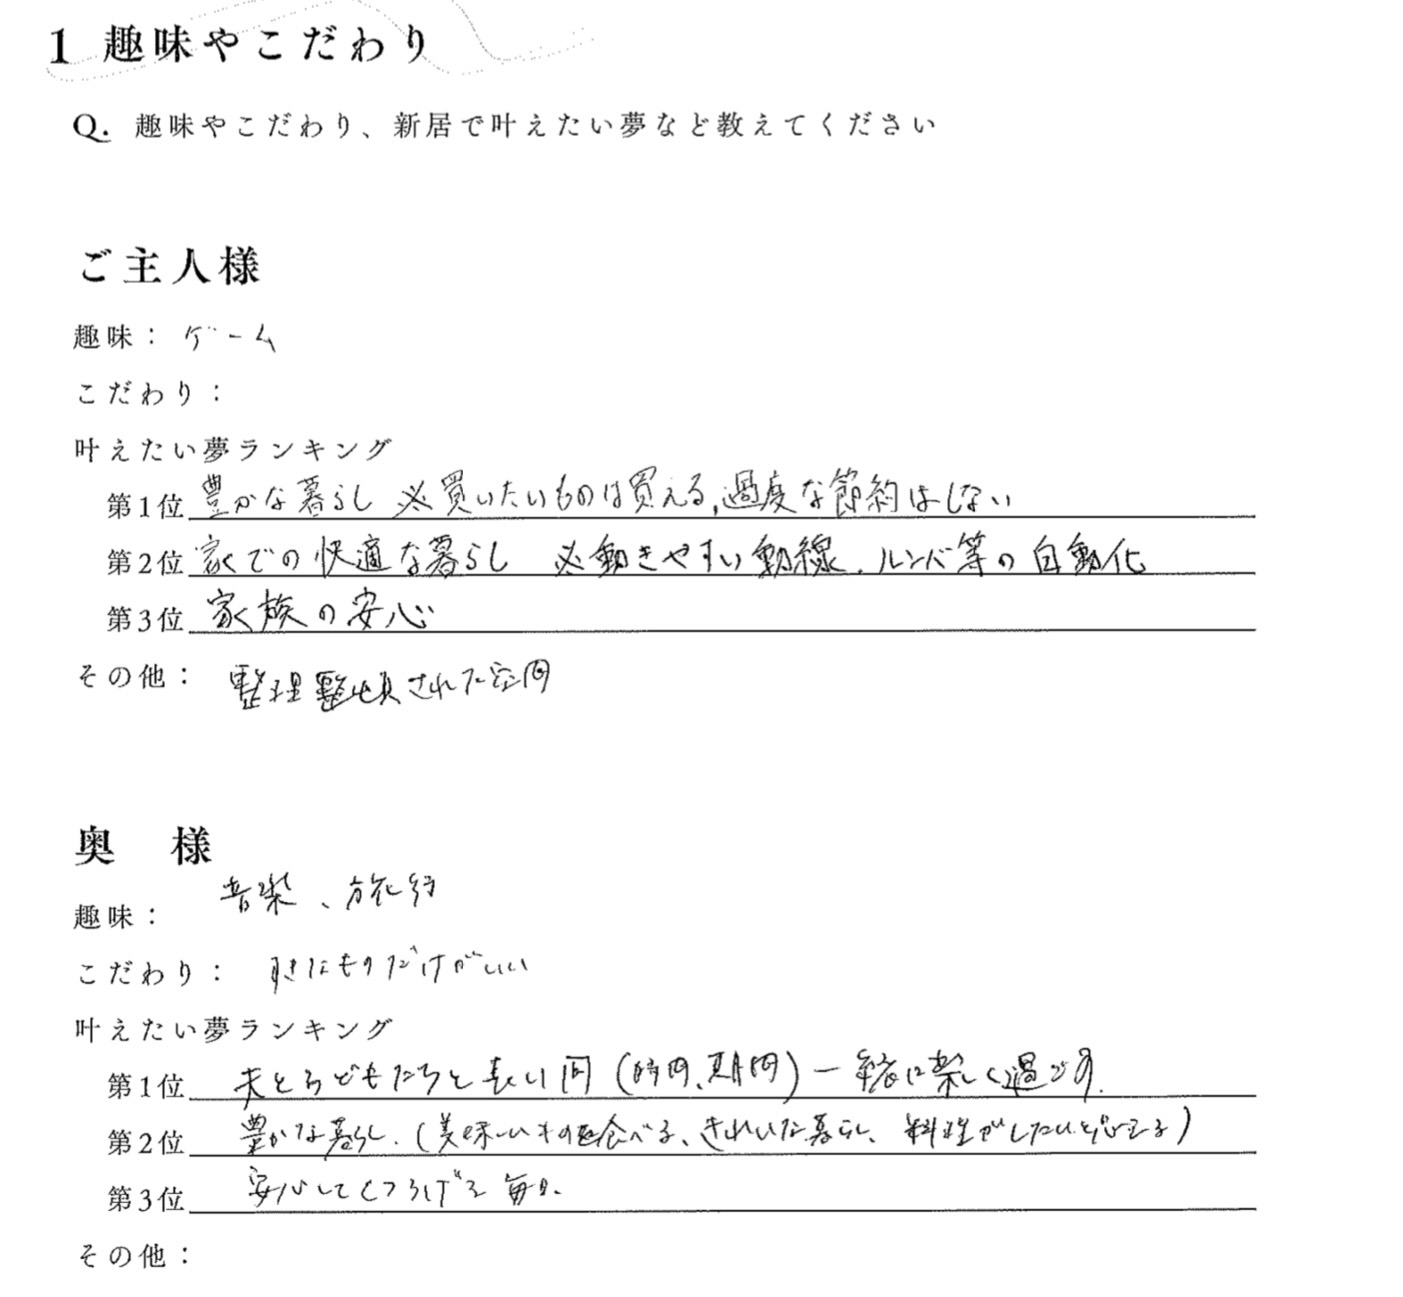 1 趣味やこだわり
Q. 趣味やこだわり、新居で叶えたい夢など教えてください
ご主人様
趣味： ゲーム
こだわり：
叶えたい夢ランキング
第1位 豊かな暮らし ※買いたいものは買える,過度な節約はしない
第2位 家での快適な暮らし ※動きやすい動線、ルンバ等の自動化
第3位 家族の安心
その他： 整理整頓された空間
奥 様
趣味： 音楽、旅行
こだわり： 好きなものだけがいい
叶えたい夢ランキング
第1位 夫と子どもたちと長い間(時間、期間)一緒に楽しく過ごす.
第2位 豊かな暮らし.(美味しいものを食べる、きれいな暮らし、料理がしたいと思える)
第3位 安心してくつろげる毎日.
その他：